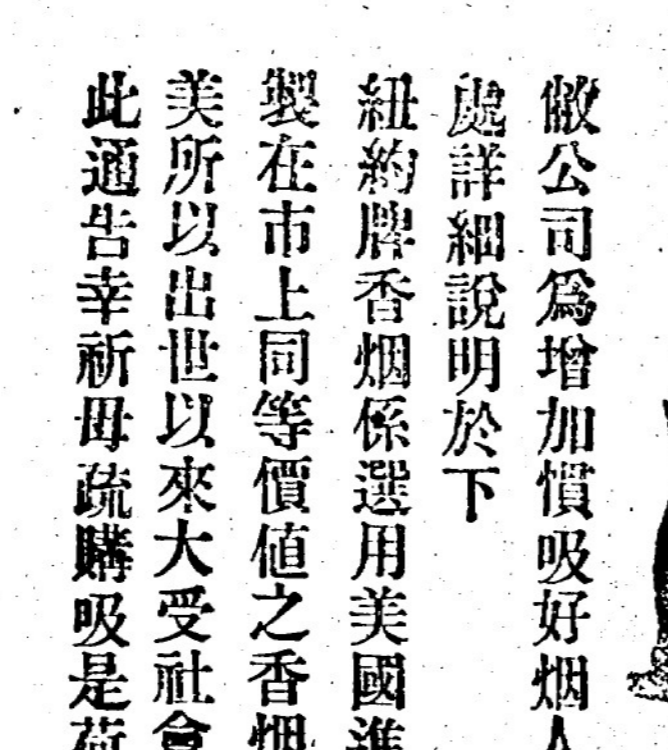 敝公司爲增加慣吸好烟人
處詳細說明於下
紐約牌香烟係選用美國進
製在市上同等價値之香烟
美所以出世以來大受社會
此通告幸祈毋疏購吸是荷